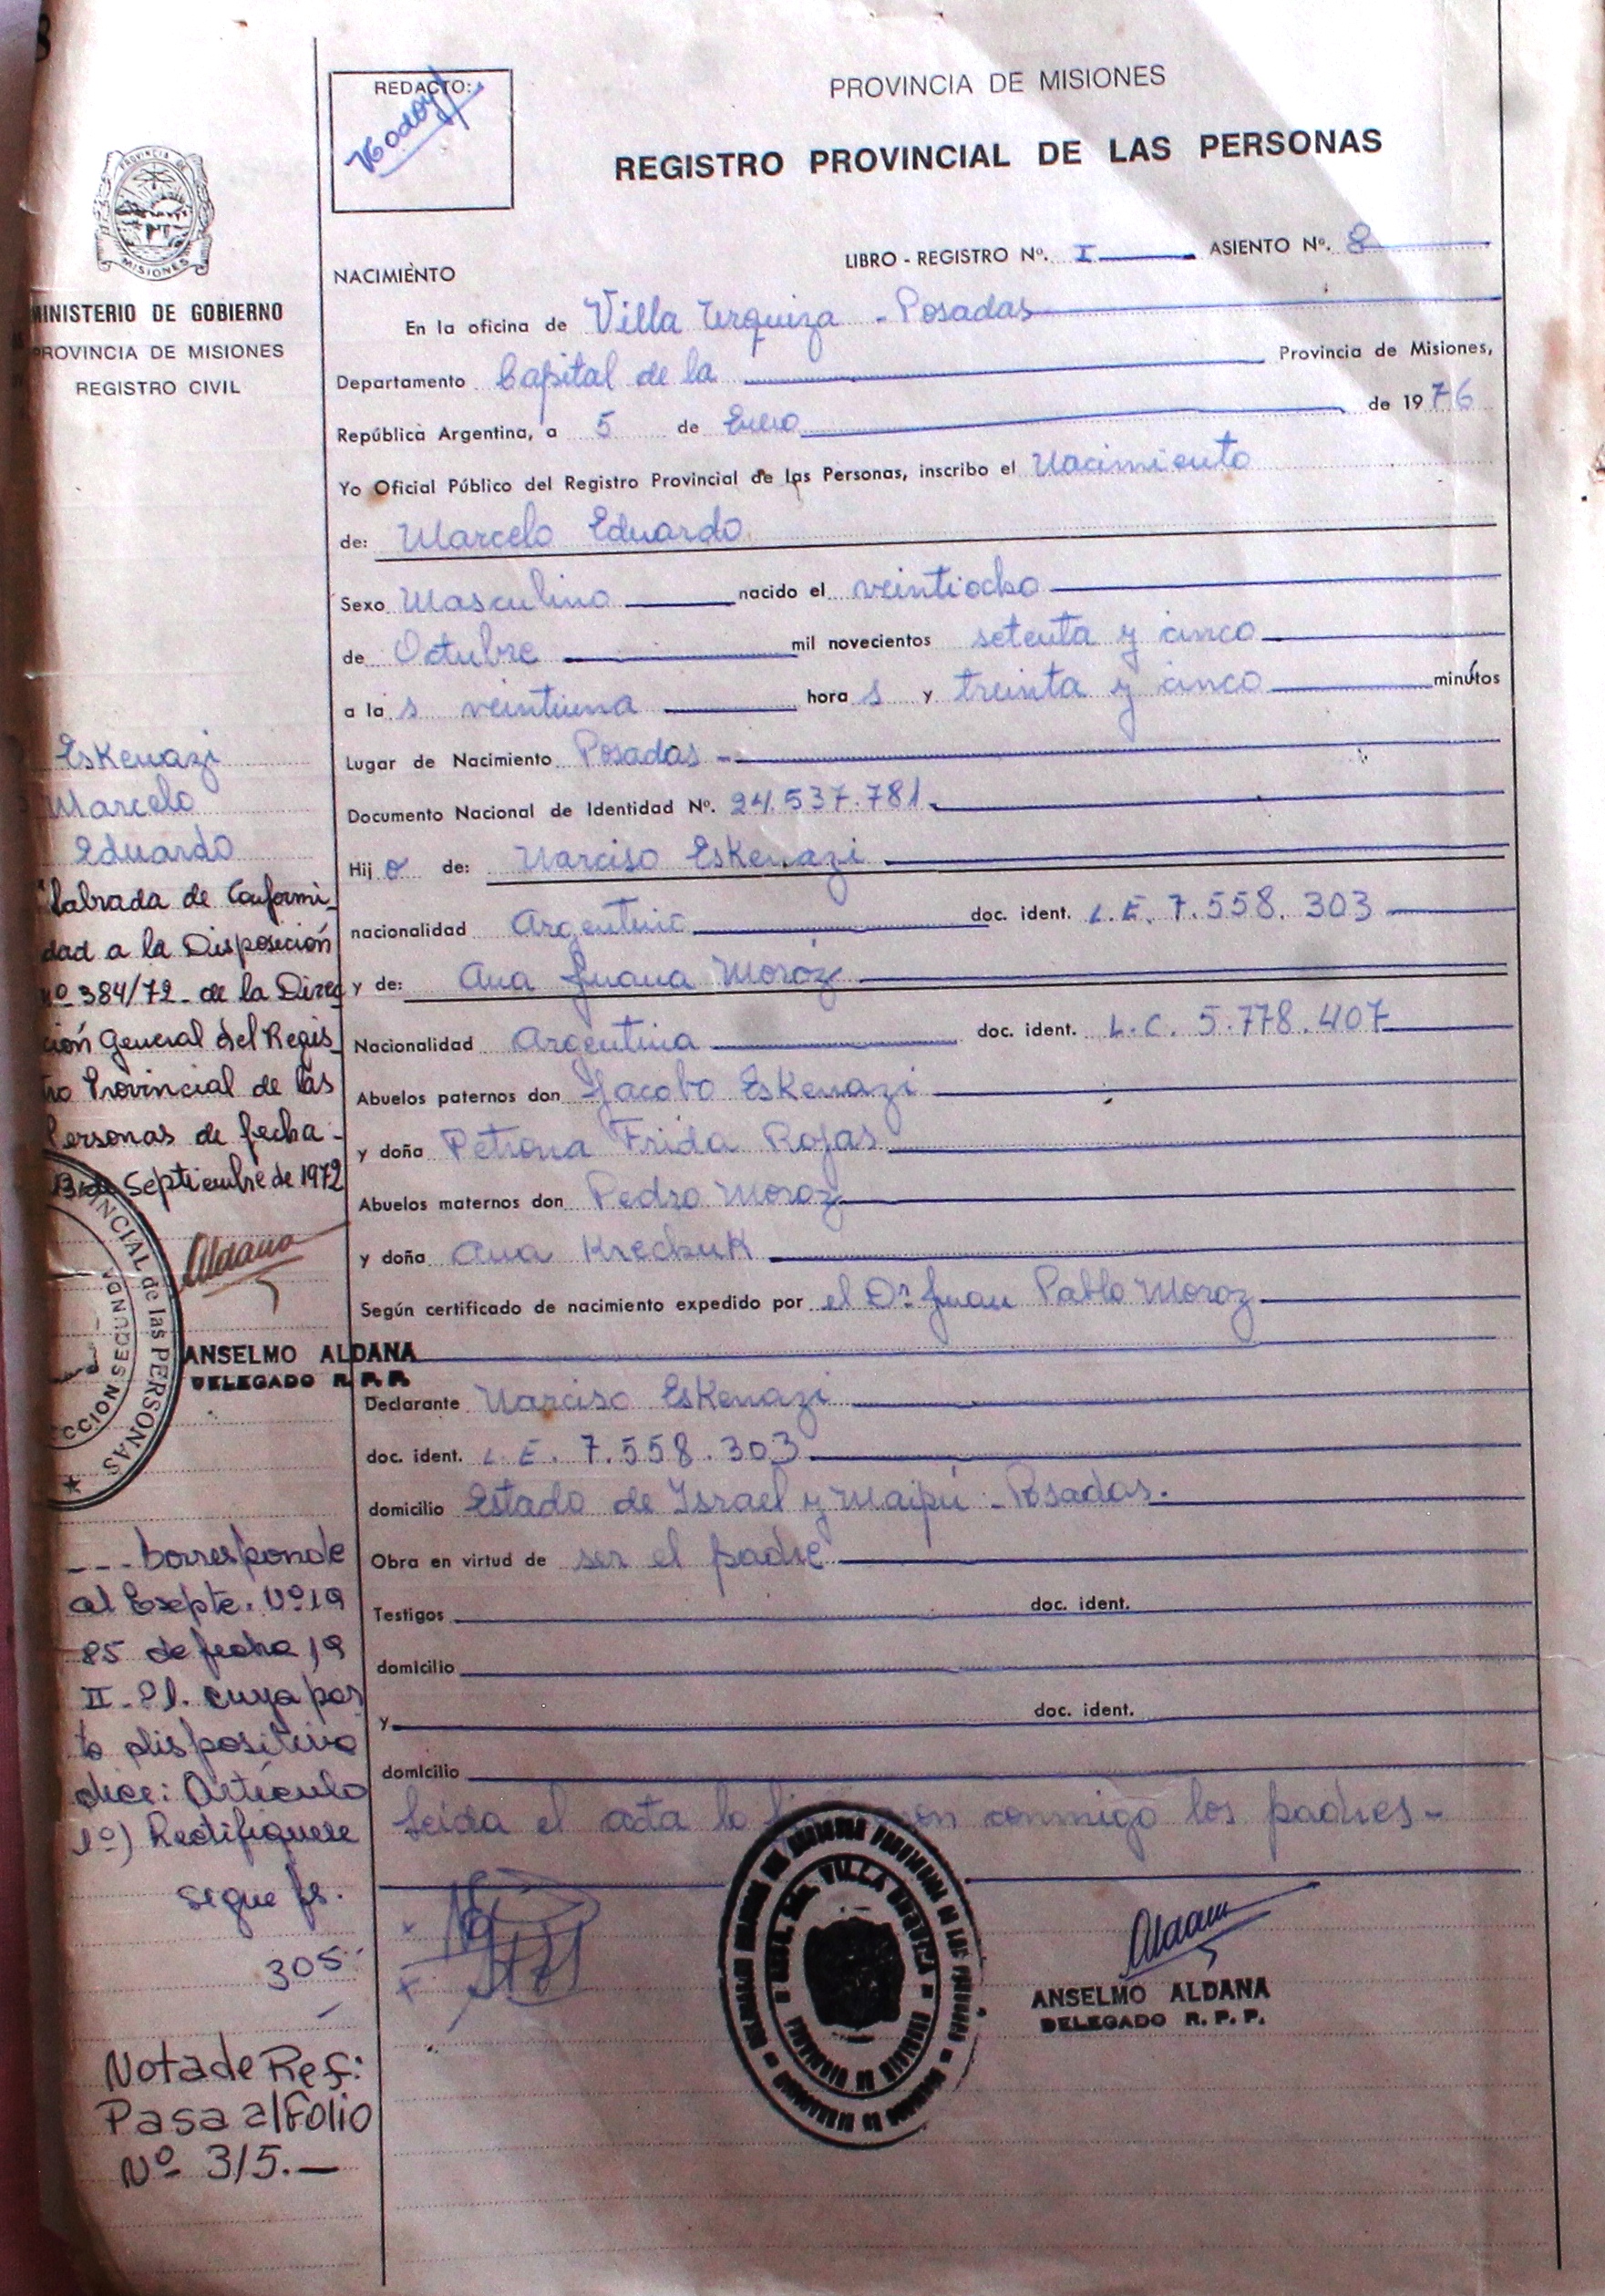 REDACTO:
Godoy
PROVINCIA DE MISIONES
REGISTRO PROVINCIAL DE LAS PERSONAS
LIBRO - REGISTRO Nº. I ASIENTO Nº. 8
NACIMIENTO
En la oficina de Villa Urquiza - Posadas
Departamento Capital de la Provincia de Misiones,
República Argentina, a 5 de Enero de 1976
Yo Oficial Público del Registro Provincial de las Personas, inscribo el Nacimiento
de: Marcelo Eduardo
Sexo Masculino nacido el veintiocho
de Octubre mil novecientos setenta y cinco
a la s veintiuna hora s y treinta y cinco minutos
Lugar de Nacimiento Posadas -
Documento Nacional de Identidad Nº. 24.537.781.
Hij o de: Narciso Eskenazi
nacionalidad Argentino doc. ident. L.E. 7.558.303
y de: Ana Juana Moroz
Nacionalidad Argentina doc. ident. L.C. 5.778.407
Abuelos paternos don Jacobo Eskenazi
y doña Petrona Frida Rojas
Abuelos maternos don Pedro Moroz
y doña Ana Krechuk
Según certificado de nacimiento expedido por el Dr. Juan Pablo Moroz
Declarante Narciso Eskenazi
doc. ident. L.E. 7.558.303
domicilio Estado de Israel y Maipú - Posadas.
Obra en virtud de ser el padre
Testigos doc. ident.
domicilio
y doc. ident.
domicilio
Leida el acta la conmigo los padres-
Aldana
ANSELMO ALDANA
DELEGADO R. P. P.
PROVINCIA DE
MISIONES
MINISTERIO DE GOBIERNO
PROVINCIA DE MISIONES
REGISTRO CIVIL
Eskenazi
Marcelo
Eduardo
Labrada de Conformi-
dad a la Disposición
Nº 384/72- de la Direc
ción General del Regis-
tro Provincial de las
Personas de fecha -
13 de Septiembre de 1972
Aldana
ANSELMO ALDANA
DELEGADO R. P. P.
INCIAL de las PERSONAS
CCION SEGUNDA
--- Corresponde
al Expte. Nº 19
85 de fecha 19
II-81. cuya par
te dispositiva
dice: Artículo
1º) Rectifiquese
sigue fs.
305
Nota de Ref:
Pasa al Folio
Nº 315.-